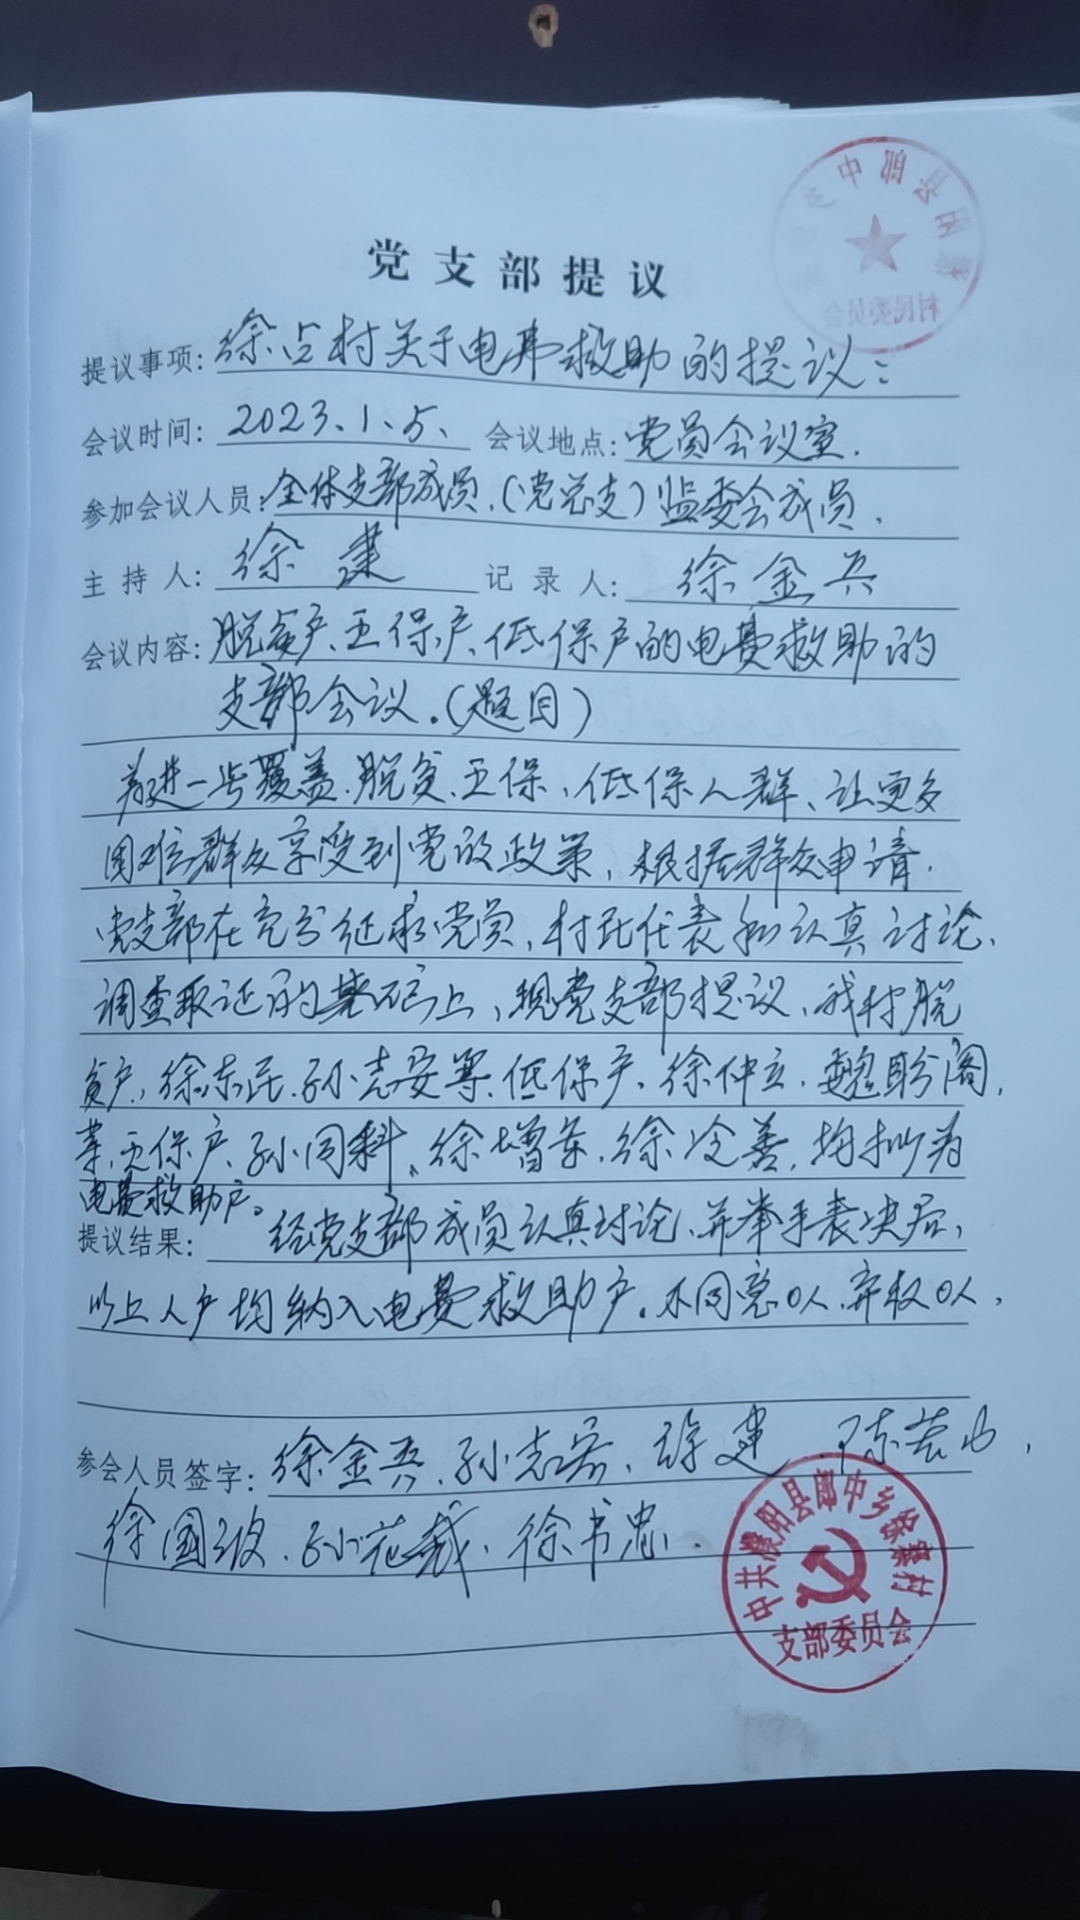 党支部提议
提议事项:徐占村关于电费救助的提议:
会议时间:2023.1.5、 会议地点:党员会议室.
参加会议人员:全体支部成员、(党总支)监委会成员.
主持人:徐建 记录人:徐金兵
会议内容:脱贫户、五保户、低保户的电费救助的
支部会议。(题目)
为进一步覆盖、脱贫、五保、低保人群、让更多
困难群众享受到党的政策,根据群众申请.
党支部在充分征求党员,村民代表和认真讨论、
调查取证的基础上,现党支部提议、我村脱
贫户、徐东民、孙志安等、低保户、徐仲立、魏盼阁、
等,五保户、孙同科、徐增东、徐冷善,均拟为
电费救助户。
提议结果: 经党支部成员认真讨论、并举手表决后,
以上人户均纳入电费救助户。不同意0人、弃权0人,
参会人员签字:徐金兵、孙志安、徐建
徐国波、孙花我、徐书忠.
中共濮阳县郎中乡徐寨村
支部委员会
村民委员会